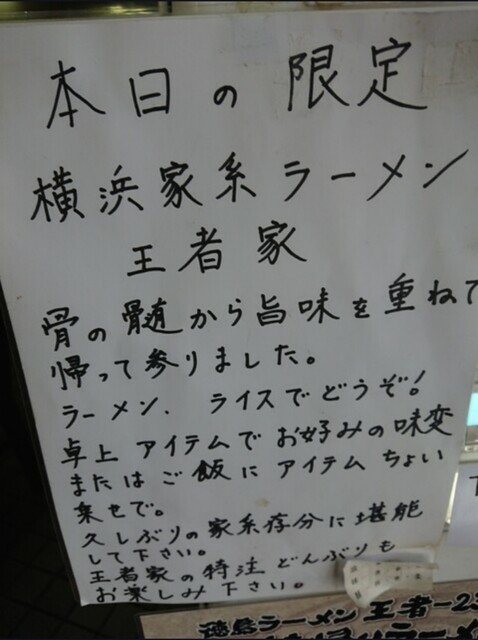 本日の限定
横浜家系ラーメン
王者家
骨の髄から旨味を重ねて
帰って参りました。
ラーメン、ライスでどうぞ!
卓上アイテムでお好みの味変
またはご飯にアイテムちょい
乗せで。
久しぶりの家系存分に堪能
して下さい。
王者家の特注どんぶりも
お楽しみ下さい。
徳島ラーメン王者-23